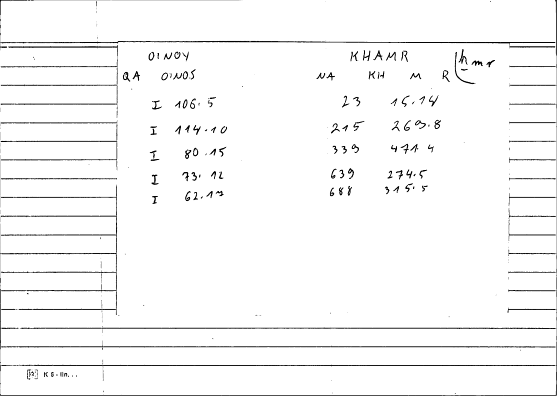 OINOY KHAMR hmr
QA OINOS NA KH M R
I 106.5 23 15.14
I 114.10 215 269.8
I 80.15 339 471.4
I 73.12 639 274.5
I 62.17 688 315.5
K 6 -